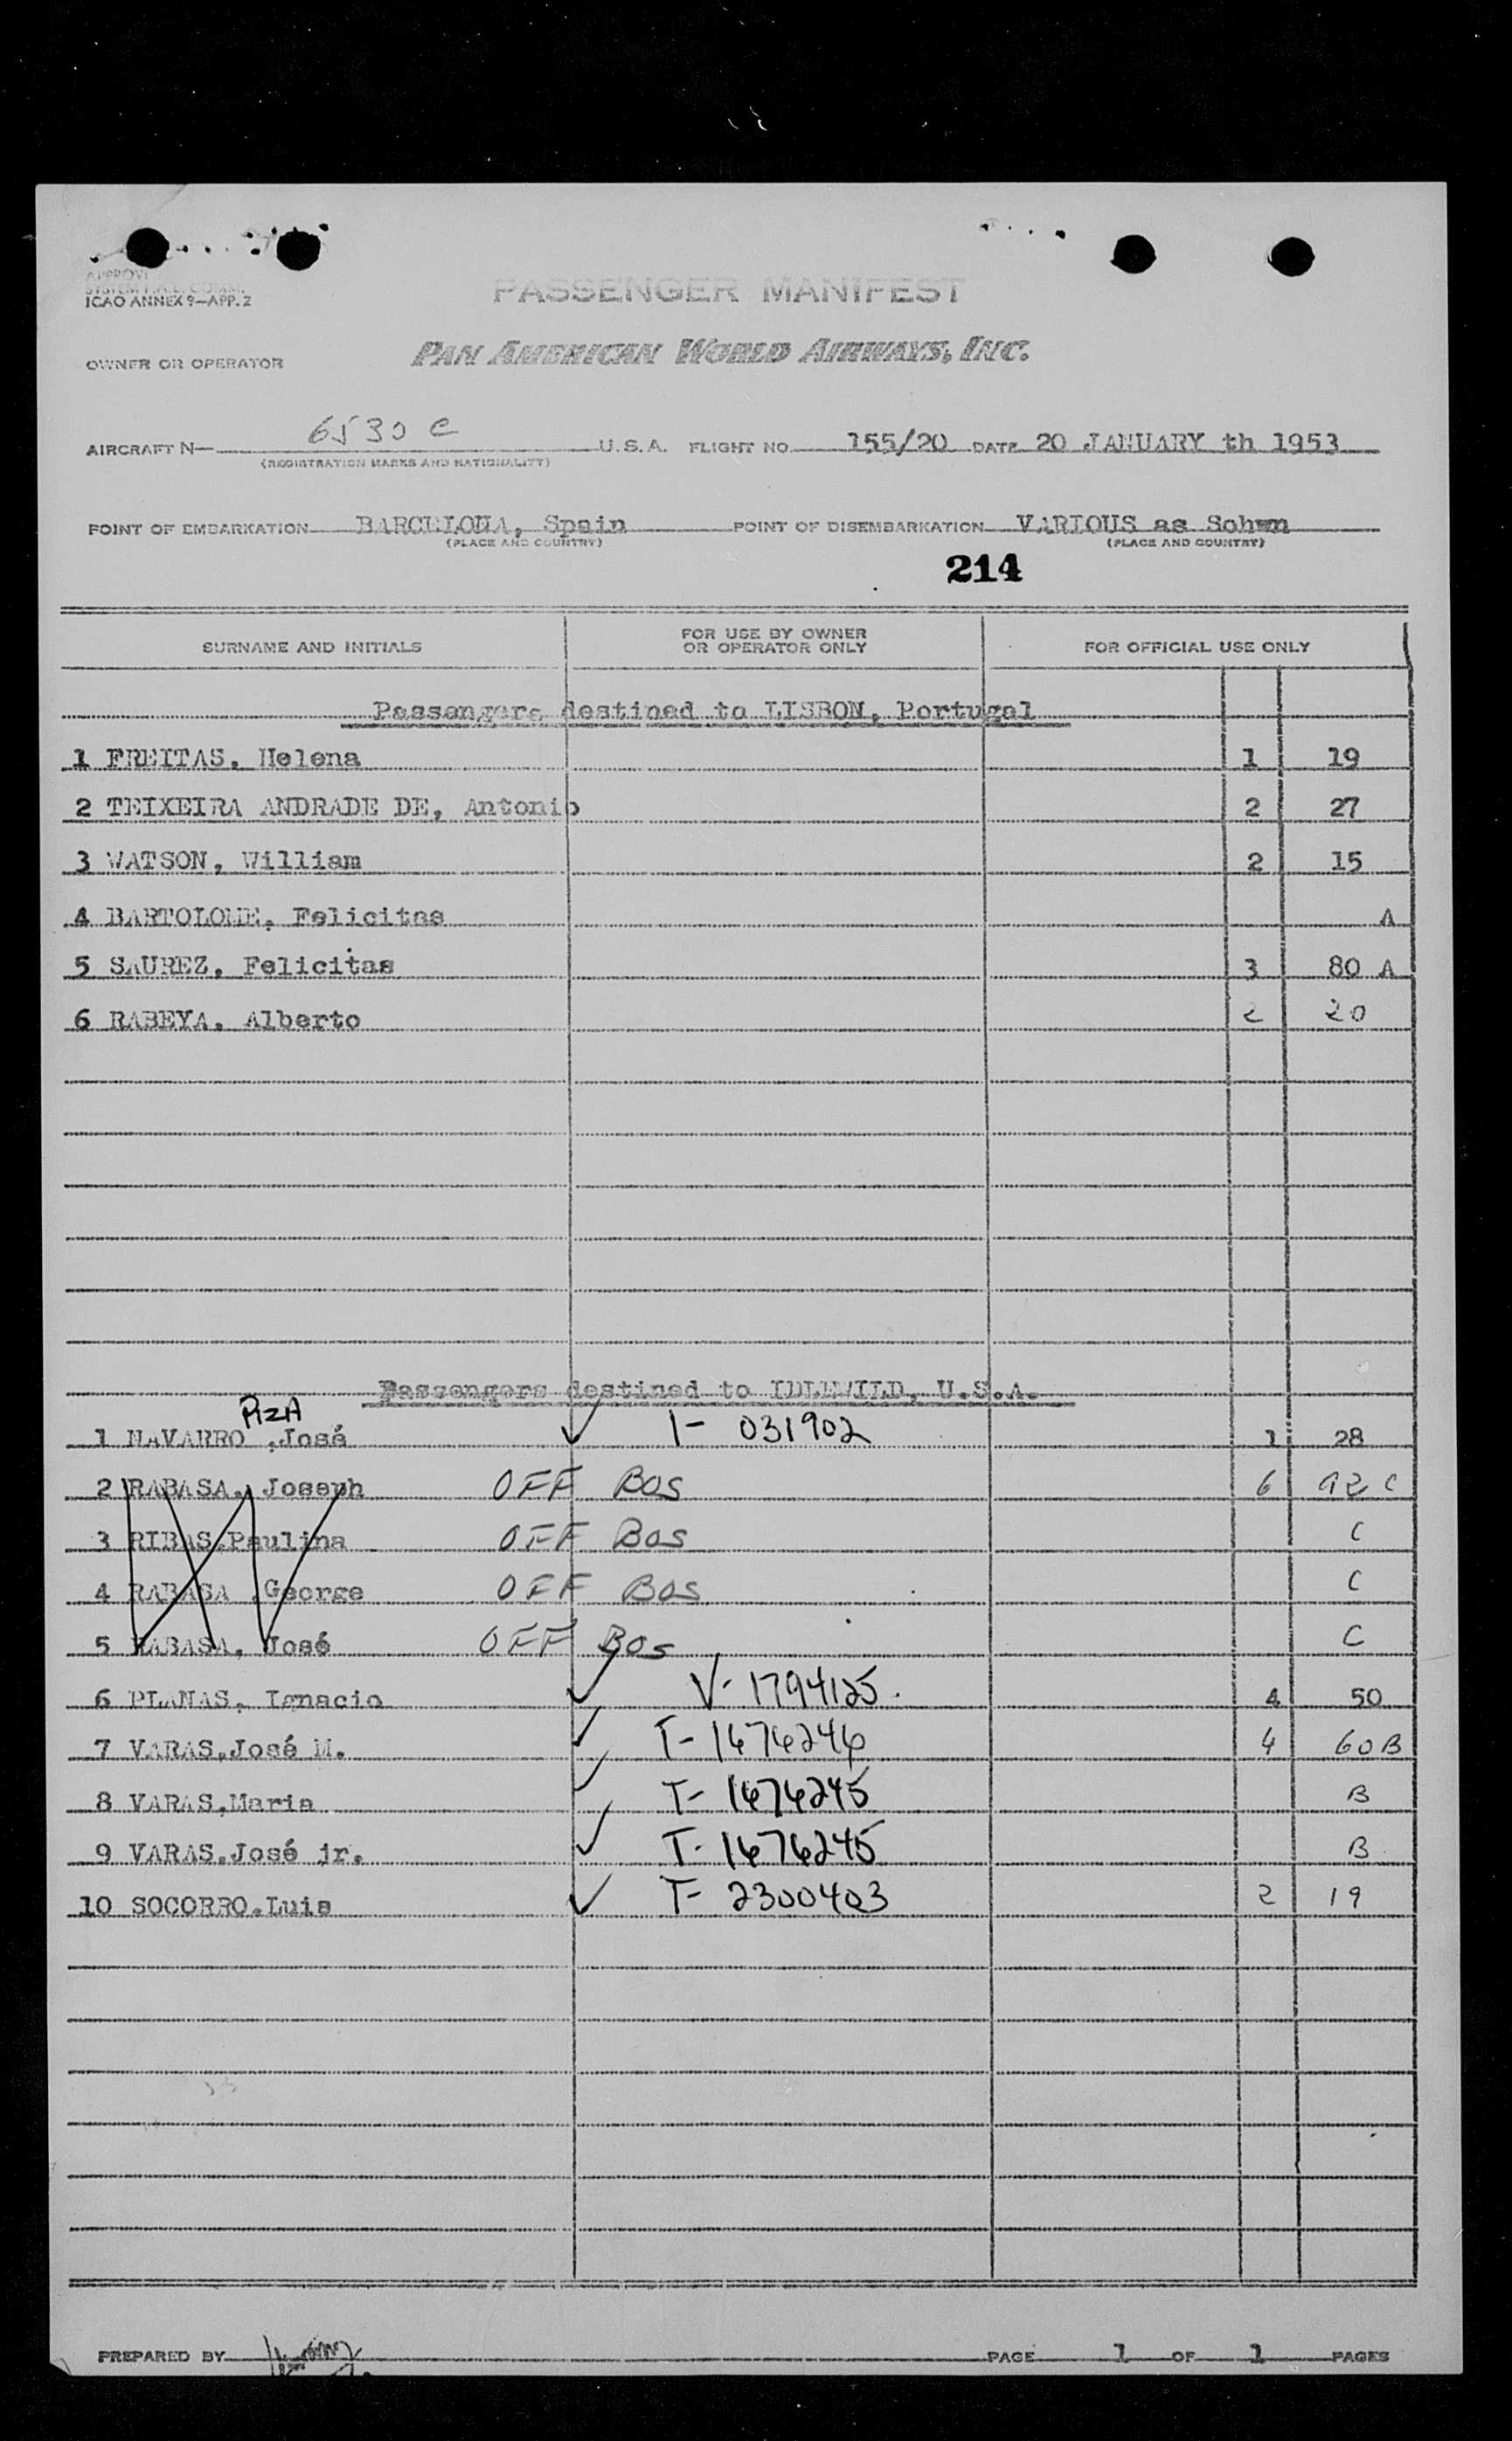 ICAO ANNEX 9—APP. 2
PASSENGER MANIFEST
OWNER OR OPERATOR PAN AMERICAN WORLD AIRWAYS, INC.
AIRCRAFT N— 6530 C U.S.A. FLIGHT NO. 155/20 DATE 20 JANUARY th 1953
(REGISTRATION MARKS AND NATIONALITY)
POINT OF EMBARKATION BARCELONA, Spain POINT OF DISEMBARKATION VARIOUS as Sohwn
(PLACE AND COUNTRY) (PLACE AND COUNTRY)
214
SURNAME AND INITIALS FOR USE BY OWNER OR OPERATOR ONLY FOR OFFICIAL USE ONLY
Passengers destined to LISBON, Portugal
1 FREITAS, Helena 1 19
2 TEIXEIRA ANDRADE DE, Antonio 2 27
3 WATSON, William 2 15
4 BARTOLOME, Felicitas A
5 SAUREZ, Felicitas 3 80 A
6 RABEYA, Alberto 2 20
Passengers destined to IDLEWILD, U.S.A.
PIZA
1 NAVARRO ,José ✓ I- 031902 1 28
2 RABASA, Joseph OFF BOS 6 92 C
3 RIBAS,Paulina OFF BOS C
4 RABASA ,George OFF BOS C
5 RABASA, José OFF BOS C
6 PLANAS, Ignacio ✓ V- 1794125. 4 50
7 VARAS,José M. ✓ T- 1676246 4 60 B
8 VARAS,Maria ✓ T- 1676245 B
9 VARAS,José jr. ✓ T- 1676245 B
10 SOCORRO,Luis ✓ T- 2300403 2 19
PREPARED BY PAGE 1 OF 1 PAGES